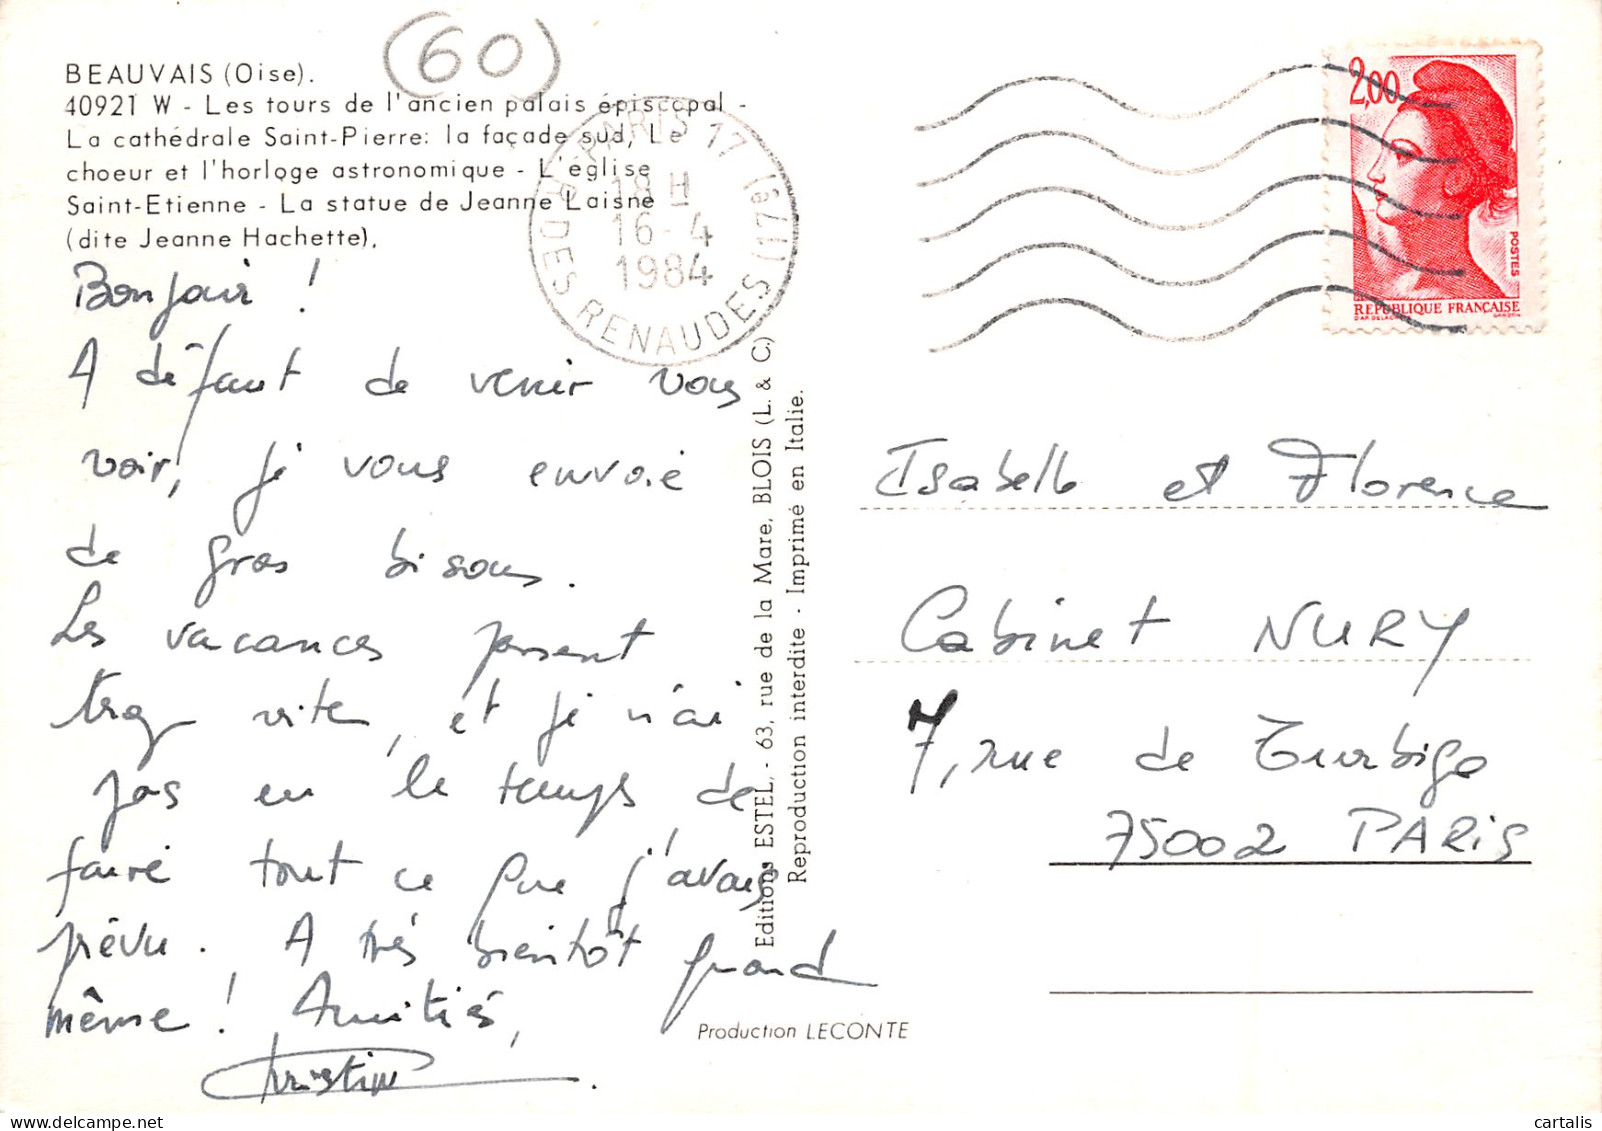 (60)
BEAUVAIS (Oise).
40921 W - Les tours de l'ancien palais épiscopal -
La cathédrale Saint-Pierre: la façade sud, Le
choeur et l'horloge astronomique - L'église
Saint-Etienne - La statue de Jeanne Laisné
(dite Jeanne Hachette).
PARIS 17 (17è)
18 H
16-4
1984
R. DES RENAUDES
2,00
POSTES
REPUBLIQUE FRANCAISE
D'AP. DELACROIX GANDON
Bonjour !
A défaut de venir vous
voir, je vous envoie
de gros bisous.
Les vacances passent
trop vite, et je n'ai
pas eu le temps de
faire tout ce que j'avais
prévu. A très bientôt quand
même ! Amitiés,
Christine
Editions ESTEL, - 63, rue de la Mare, BLOIS (L. & C.)
Reproduction interdite - Imprimé en Italie.
Isabelle et Florence
Cabinet NURY
7, rue de Turbigo
75002 PARIS
Production LECONTE
cartalis
delcampe.net